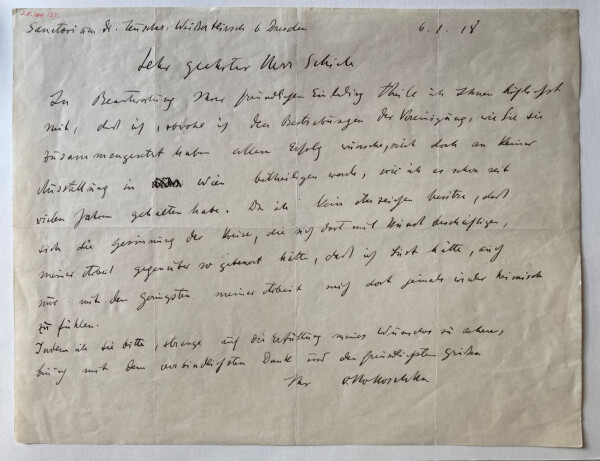 Sanatorium Dr. Teuscher, Weißer Hirsch b. Dresden 6.1.18
Sehr geehrter Herr Schiele
In Beantwortung Ihrer freundlichen Einladung theile ich Ihnen höflichst
mit, daß ich, ich den Bestrebungen der Vereinigung, wie Sie sie
zusammengesetzt haben allen Erfolg wünsche, mich doch an keiner
Ausstellung in Wien betheiligen werde, wie ich es schon seit
vielen Jahren gehalten habe. Da ich kein besitze, daß
sich die Gesinnung der Kreise, die sich dort mit Kunst beschäftigen,
meiner Arbeit gegenüber so hätte, daß ich Lust hätte, auch
nur mit dem geringsten meiner Arbeit mich dort jemals wieder heimisch
zu fühlen.
Indem ich Sie bitte, strenge auf die Erfüllung meines Wunsches zu achten,
bin ich mit dem verbindlichsten Dank und den freundlichsten Grüßen
Ihr O. Kokoschka